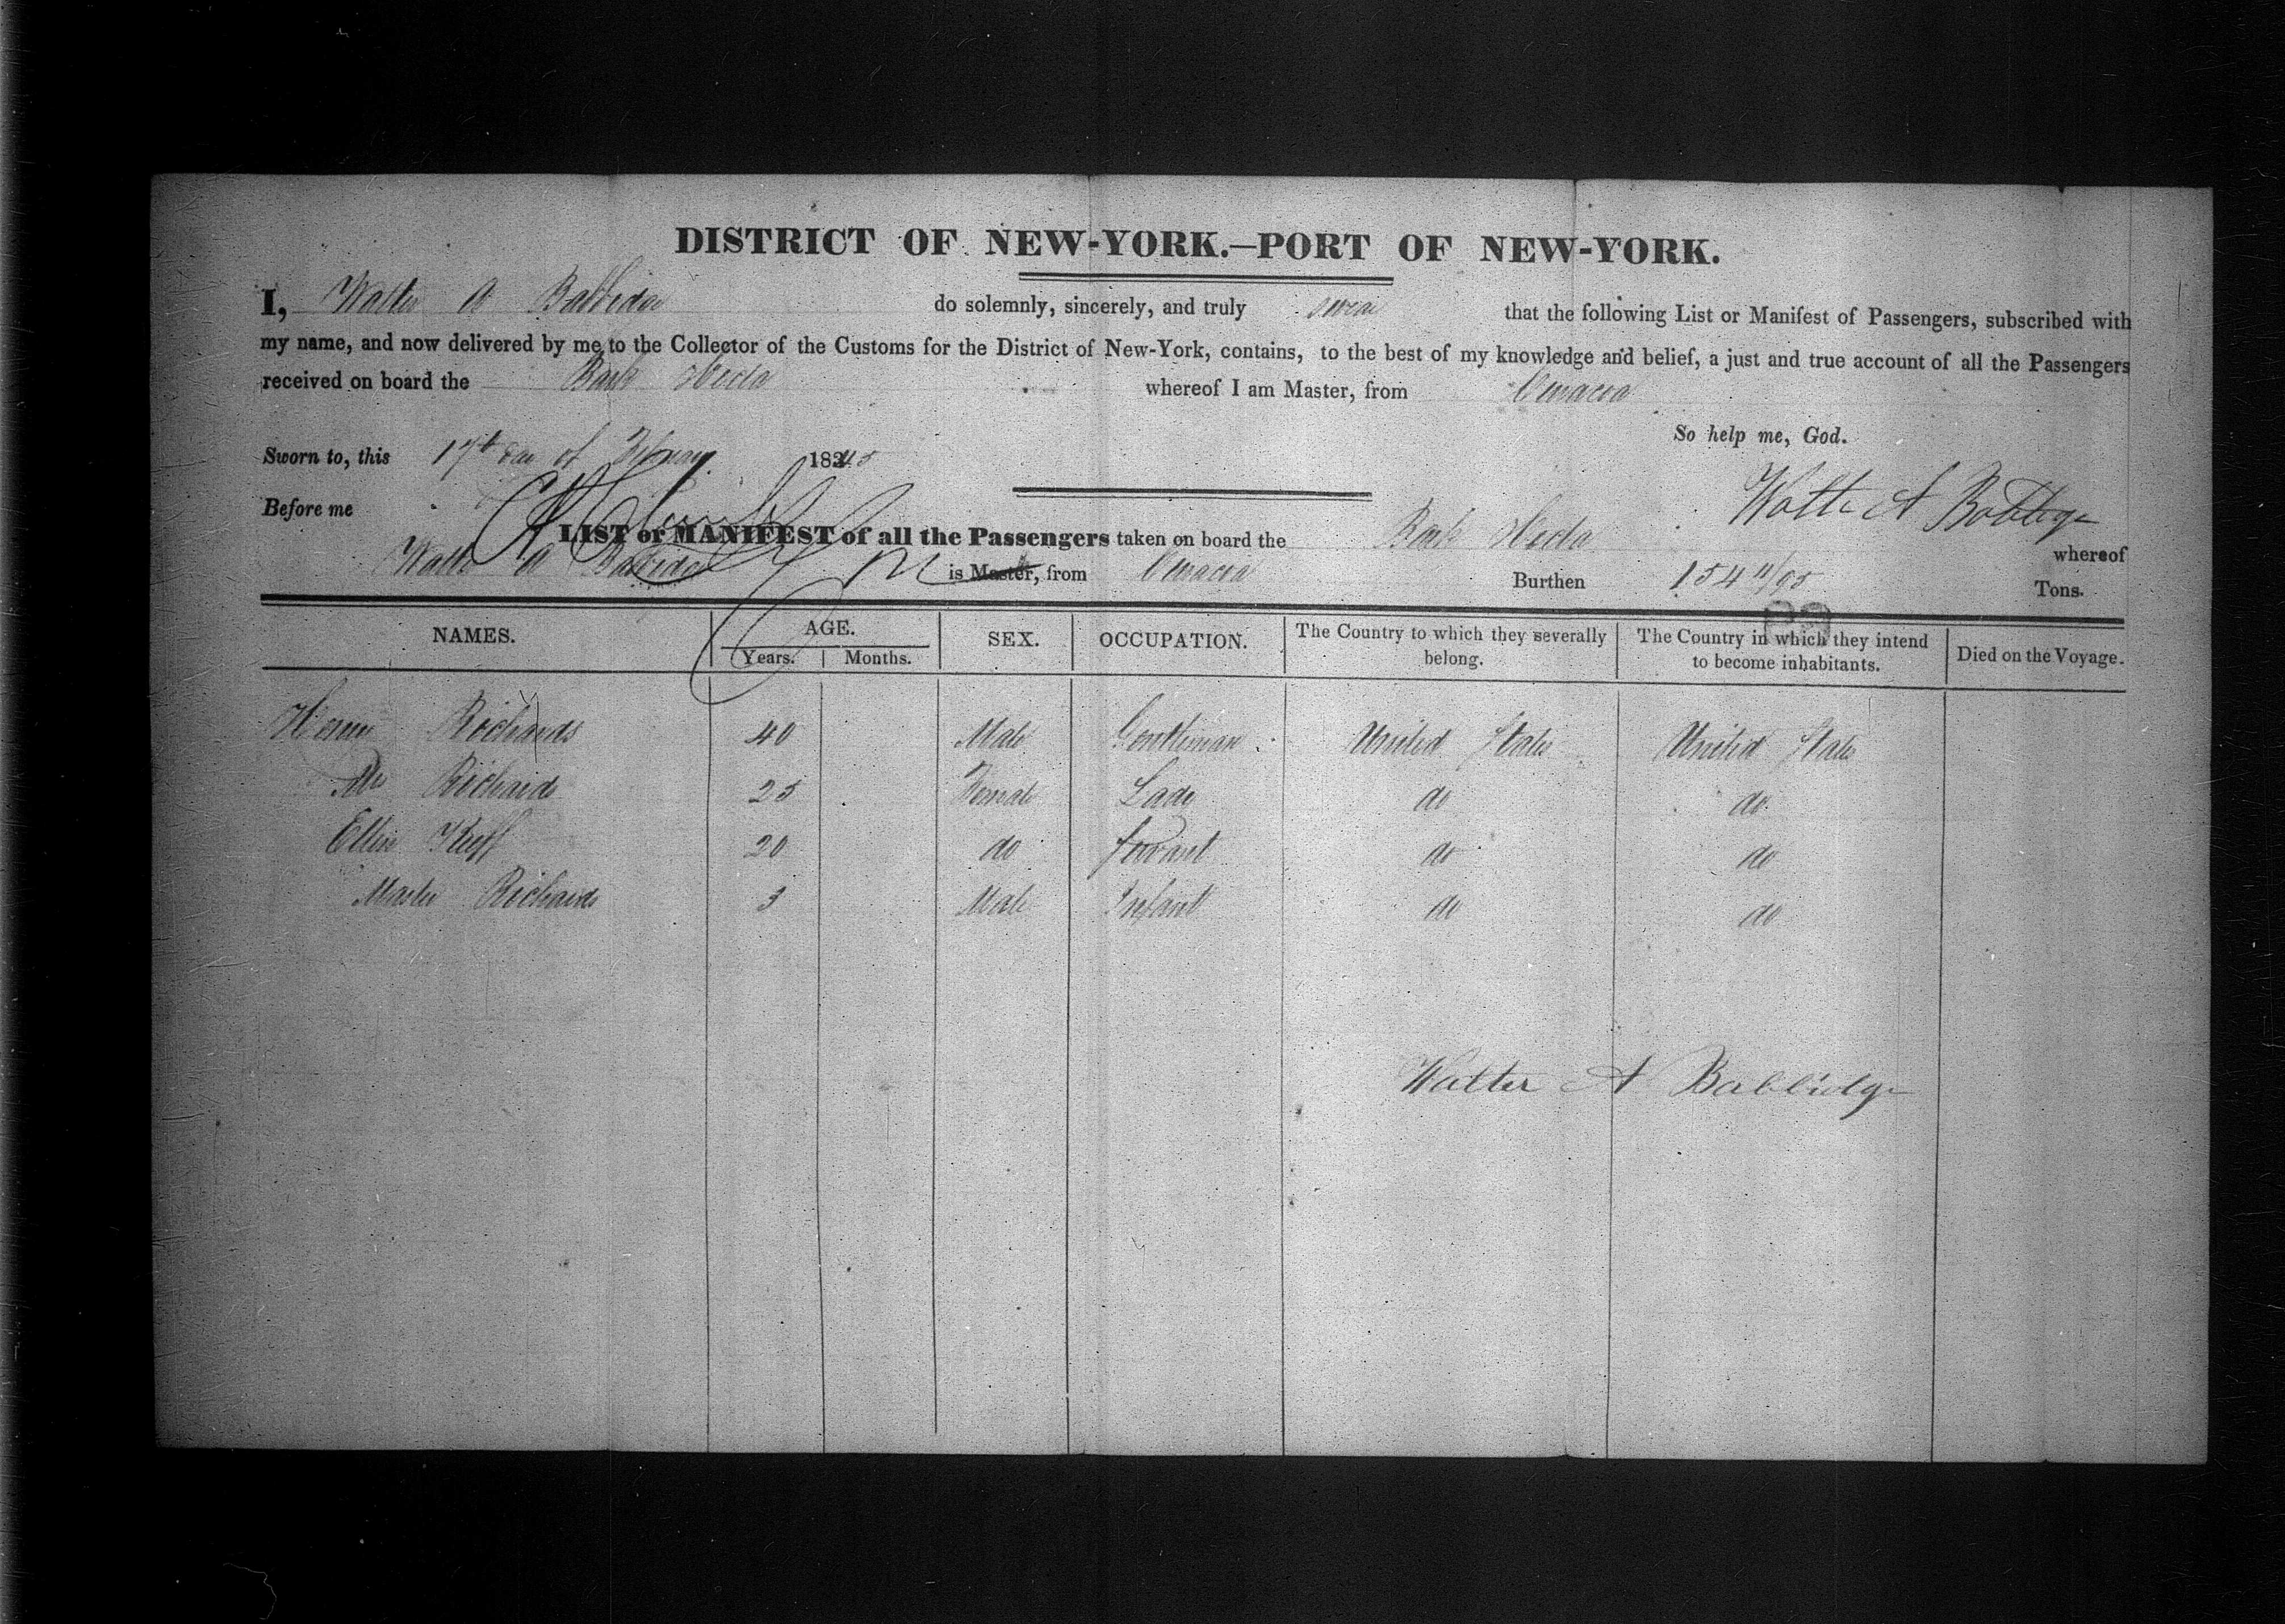 DISTRICT OF NEW-YORK.—PORT OF NEW-YORK.
I, Walter A Babbidge do solemnly, sincerely, and truly swear that the following List or Manifest of Passengers, subscribed with
my name, and now delivered by me to the Collector of the Customs for the District of New-York, contains, to the best of my knowledge and belief, a just and true account of all the Passengers
received on board the Bark Hecla whereof I am Master, from Curacoa
So help me, God.
Sworn to, this 17th day of February 1845
Walter A Babbidge
Before me
LIST or MANIFEST of all the Passengers taken on board the Bark Hecla whereof
Walter A Babbidge is Master, from Curacoa Burthen 154 11/95 Tons.
NAMES. AGE. SEX. OCCUPATION. The Country to which they severally belong. The Country in which they intend to become inhabitants. Died on the Voyage.
Years. Months.
Henry Richards 40 Male Gentleman United States United States
Mrs Richards 25 Female Lady do do
Ellen Kuff 20 do Servant do do
Master Richards 3 Male Infant do do
Walter A Babbidge